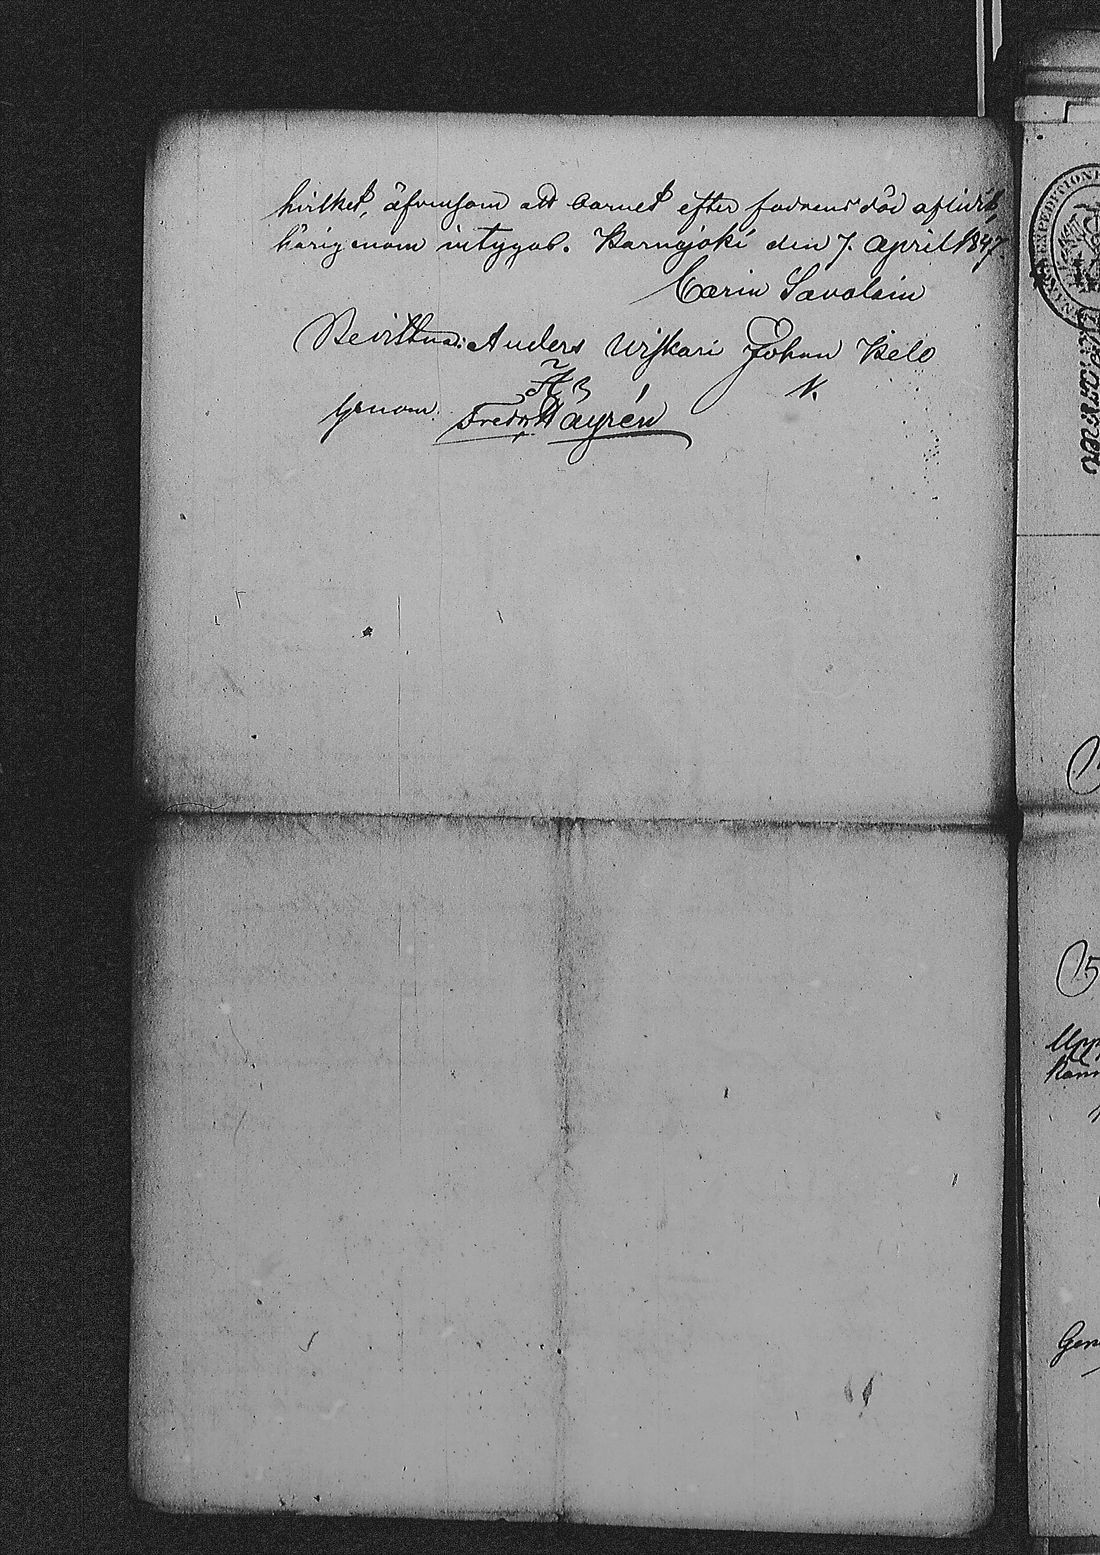 hvilket, äfvensom att barnet efter fadrens död aflidit,
härigenom intygas. Kangjoki den 7. April 1847.
Carin Savolain
Bevittna: Anders Wiskari Johan Kelo
genom. Fredr. Hayrén
EXPEDITION
(5
Upp
Gen